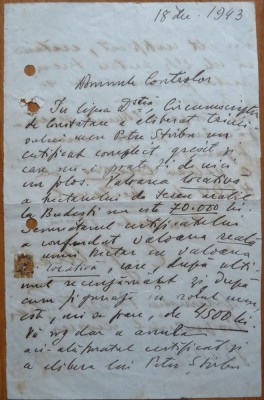 18 Dec. 1943
Domnule Controlor
In lipsa Dvs. Circumscripția
de Constatare a eliberat
meu Petre Stirbu un
certificat complect greșit și
care nu-i poate fi de nici
un folos. Valoarea locativă
a hectarului de teren arabil
la Budești nu este 70.000 lei.
Semnatarul certificatului
a confundat valoarea reală
unui hectar cu valoarea
locativă, care, după ulti-
mul recensământ și după
cum figurează în rolul meu,
este, mi se pare, de 4500 lei.
Vă rog dar a anula
aci-alăturatul certificat și
a elibera lui Petre Stirbu